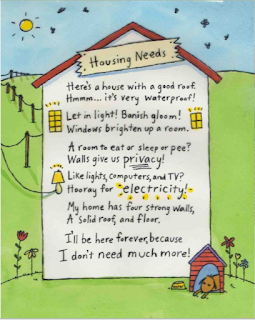 Housing Needs
Here's a house with a good roof.
Hmmm... it's very waterproof!
Let in light! Banish gloom!
Windows brighten up a room.
A room to eat or sleep or pee?
Walls give us privacy!
Like lights, computers, and TV?
Hooray for electricity!
My home has four strong walls,
A solid roof, and floor.
I'll be here forever, because
I don't need much more!